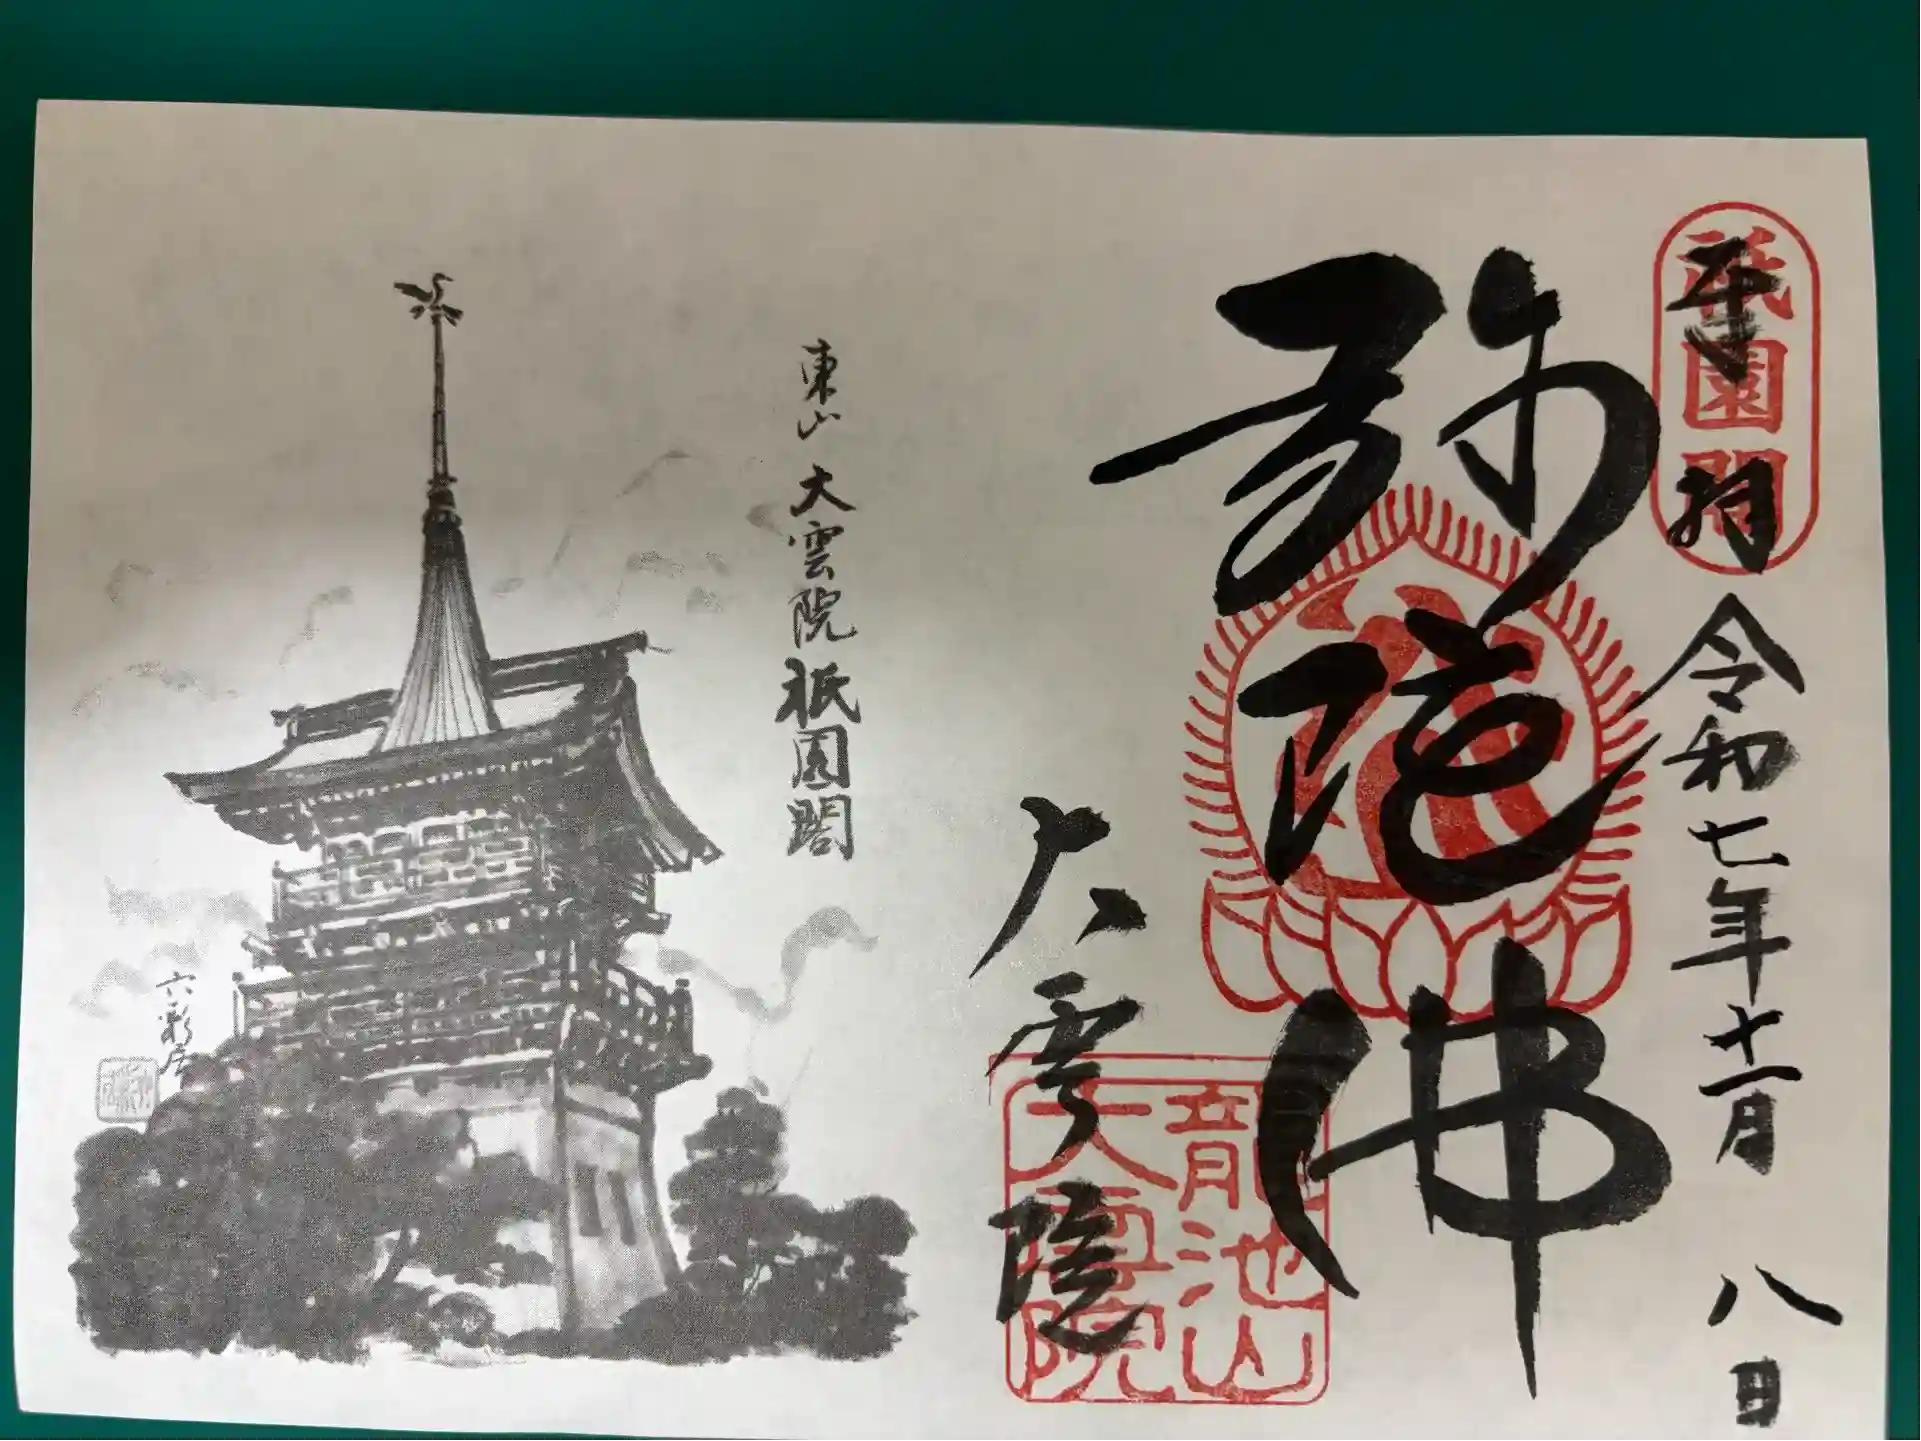 奉拝
祇園閣
令和七年十一月八日
弥陀佛
大雲院
龍池山
大雲院
東山 大雲院 祇園閣
六彩居